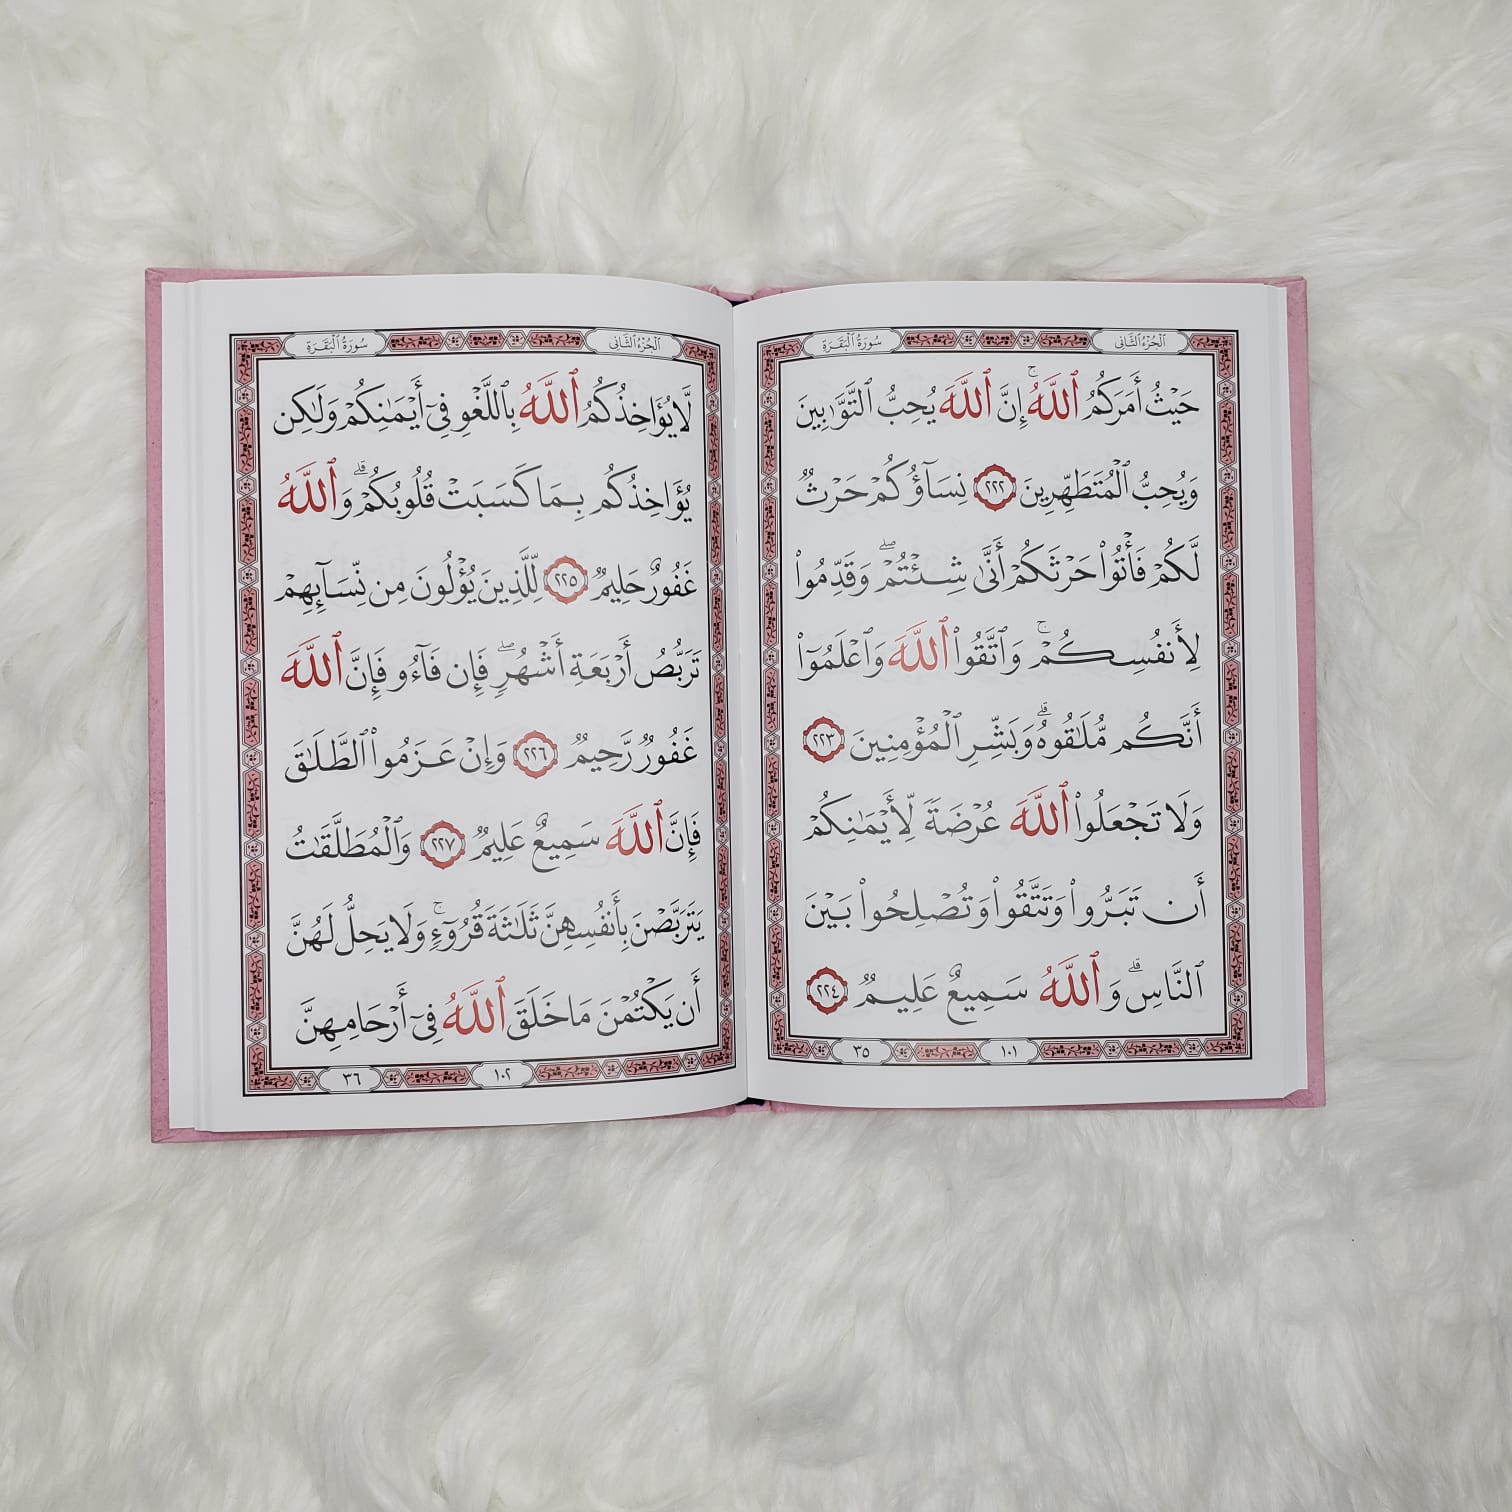 الجُزْءُ الثَّانِى
سُورَةُ الْبَقَرَةِ
حَيْثُ أَمَرَكُمُ ٱللَّهُۚ إِنَّ ٱللَّهَ يُحِبُّ ٱلتَّوَّٰبِينَ
وَيُحِبُّ ٱلْمُتَطَهِّرِينَ ٢٢٢ نِسَآؤُكُمْ حَرْثٌ
لَّكُمْ فَأْتُوا۟ حَرْثَكُمْ أَنَّىٰ شِئْتُمْۖ وَقَدِّمُوا۟
لِأَنفُسِكُمْۚ وَٱتَّقُوا۟ ٱللَّهَ وَٱعْلَمُوٓا۟
أَنَّكُم مُّلَٰقُوهُۗ وَبَشِّرِ ٱلْمُؤْمِنِينَ ٢٢٣
وَلَا تَجْعَلُوا۟ ٱللَّهَ عُرْضَةً لِّأَيْمَٰنِكُمْ
أَن تَبَرُّوا۟ وَتَتَّقُوا۟ وَتُصْلِحُوا۟ بَيْنَ
ٱلنَّاسِۗ وَٱللَّهُ سَمِيعٌ عَلِيمٌ ٢٢٤
١٠١
٣٥
الجُزْءُ الثَّانِى
سُورَةُ الْبَقَرَةِ
لَّا يُؤَاخِذُكُمُ ٱللَّهُ بِٱللَّغْوِ فِىٓ أَيْمَٰنِكُمْ وَلَٰكِن
يُؤَاخِذُكُم بِمَا كَسَبَتْ قُلُوبُكُمْۗ وَٱللَّهُ
غَفُورٌ حَلِيمٌ ٢٢٥ لِّلَّذِينَ يُؤْلُونَ مِن نِّسَآئِهِمْ
تَرَبُّصُ أَرْبَعَةِ أَشْهُرٍۖ فَإِن فَآءُو فَإِنَّ ٱللَّهَ
غَفُورٌ رَّحِيمٌ ٢٢٦ وَإِنْ عَزَمُوا۟ ٱلطَّلَٰقَ
فَإِنَّ ٱللَّهَ سَمِيعٌ عَلِيمٌ ٢٢٧ وَٱلْمُطَلَّقَٰتُ
يَتَرَبَّصْنَ بِأَنفُسِهِنَّ ثَلَٰثَةَ قُرُوٓءٍۚ وَلَا يَحِلُّ لَهُنَّ
أَن يَكْتُمْنَ مَا خَلَقَ ٱللَّهُ فِىٓ أَرْحَامِهِنَّ
١٠٢
٣٦